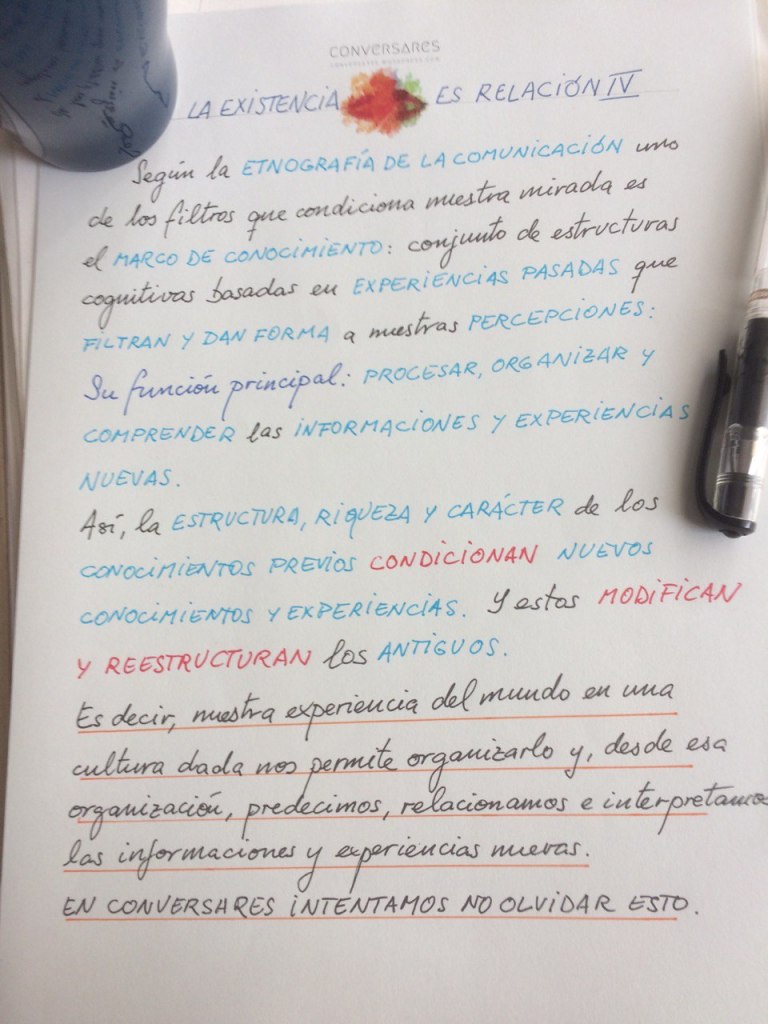 CONVERSARES
LA EXISTENCIA ES RELACIÓN IV
Según la ETNOGRAFÍA DE LA COMUNICACIÓN uno
de los filtros que condiciona nuestra mirada es
el MARCO DE CONOCIMIENTO: conjunto de estructuras
cognitivas basadas en EXPERIENCIAS PASADAS que
FILTRAN Y DAN FORMA a nuestras PERCEPCIONES:
Su función principal: PROCESAR, ORGANIZAR Y
COMPRENDER las INFORMACIONES Y EXPERIENCIAS
NUEVAS.
Así, la ESTRUCTURA, RIQUEZA Y CARÁCTER de los
CONOCIMIENTOS PREVIOS CONDICIONAN NUEVOS
CONOCIMIENTOS Y EXPERIENCIAS. Y estas MODIFICAN
Y REESTRUCTURAN los ANTIGUOS.
Es decir, nuestra experiencia del mundo en una
cultura dada nos permite organizarlo y, desde esa
organización, predecimos, relacionamos e interpretamos
las informaciones y experiencias nuevas.
EN CONVERSARES INTENTAMOS NO OLVIDAR ESTO.